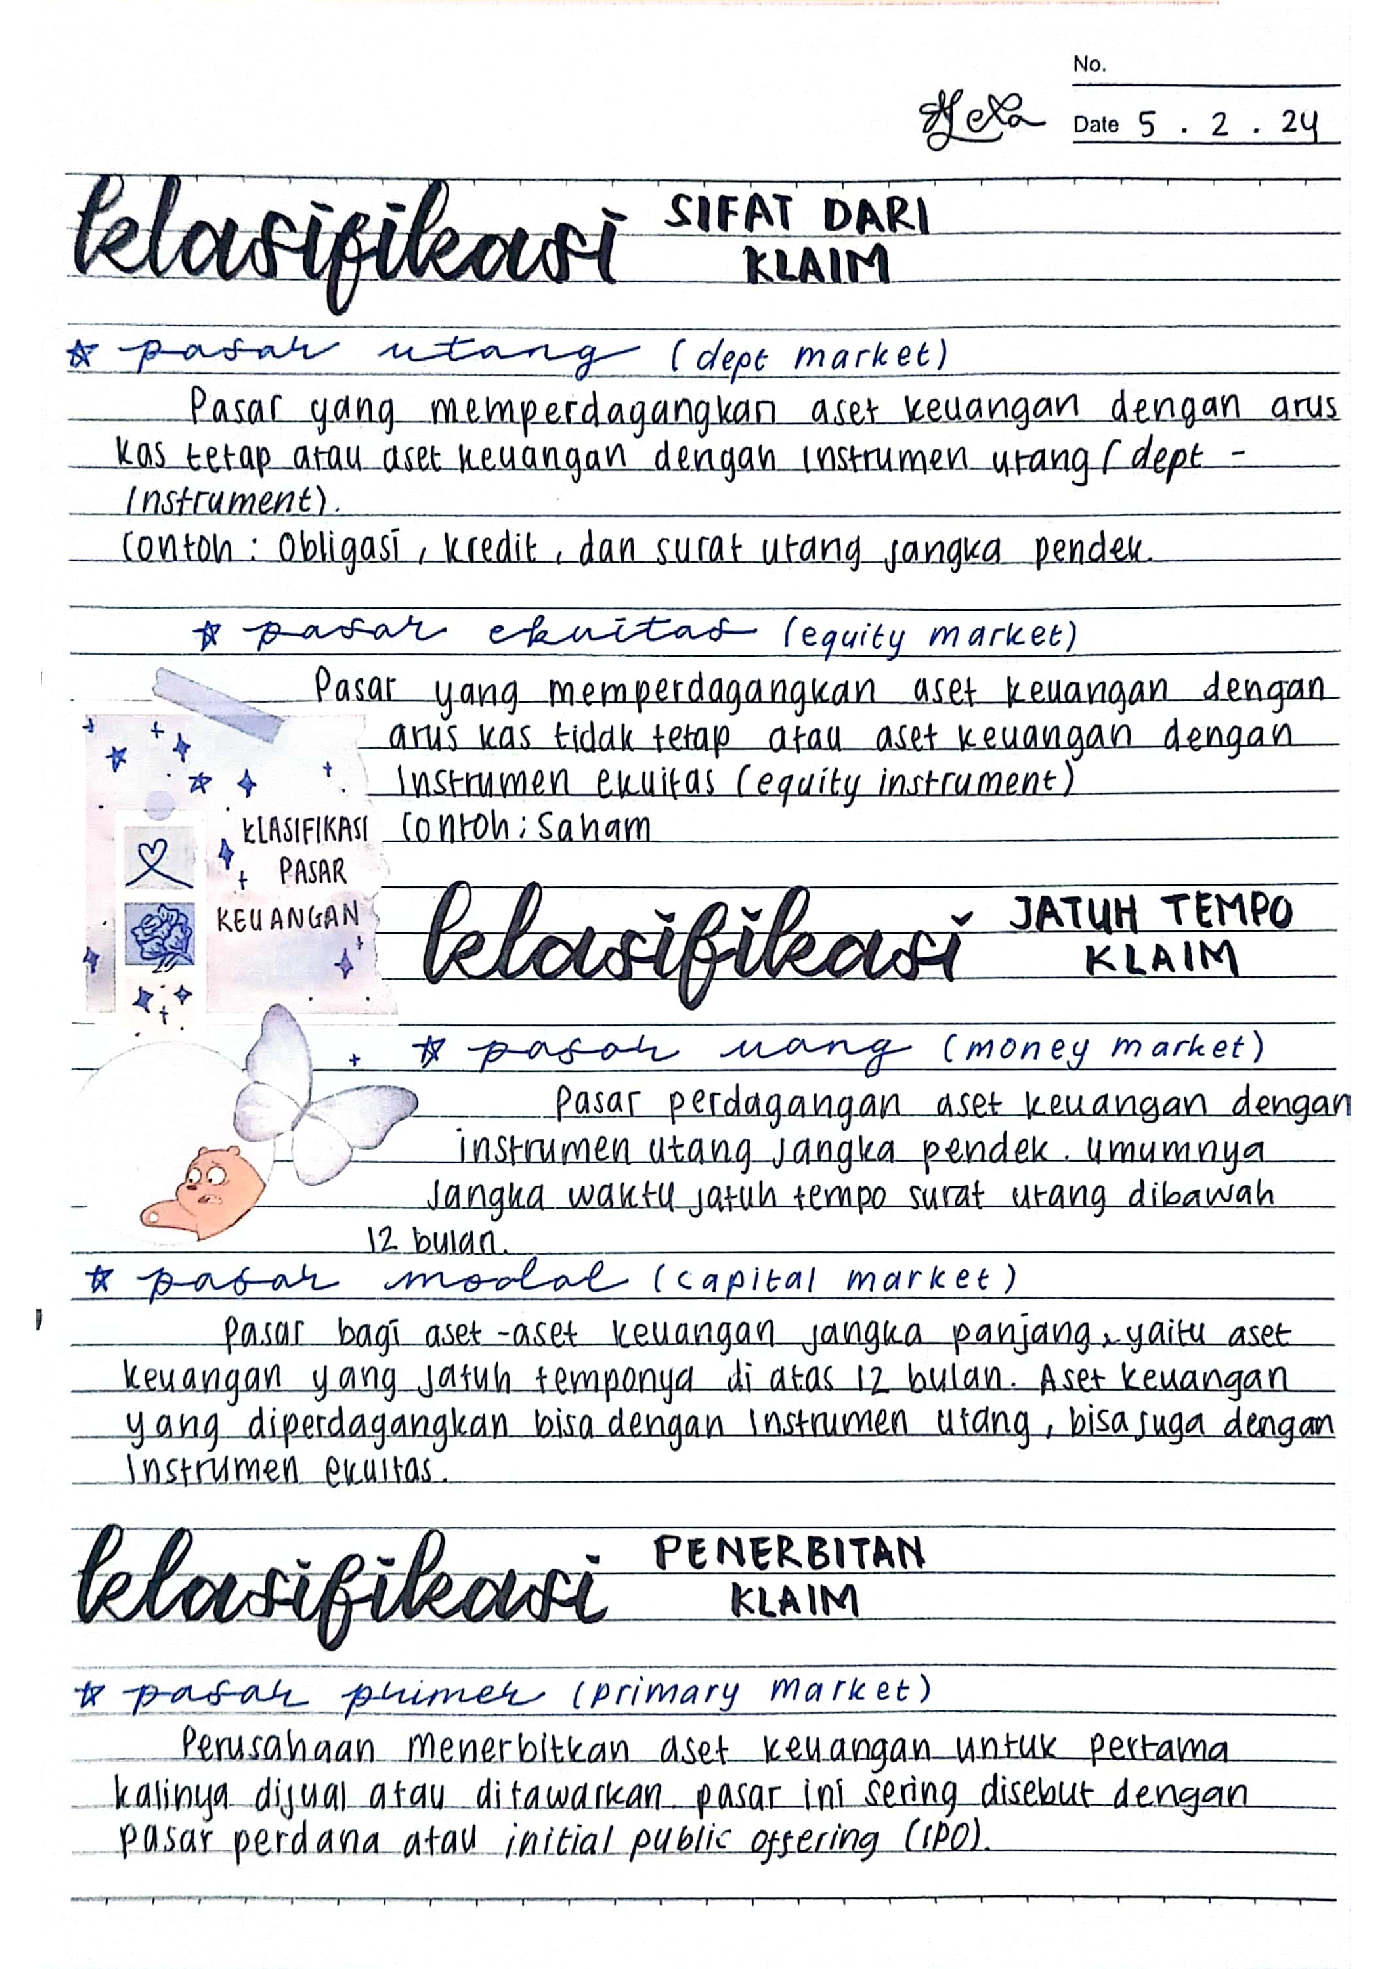 No.
Hexa
Date 5 . 2 . 24
klasifikasi SIFAT DARI
KLAIM
☆ pasar utang (dept market)
Pasar yang memperdagangkan aset keuangan dengan arus
kas tetap atau aset keuangan dengan instrumen utang (dept -
instrument).
Contoh : Obligasi, kredit, dan surat utang jangka pendek.
☆ pasar ekuitas (equity market)
Pasar yang memperdagangkan aset keuangan dengan
arus kas tidak tetap atau aset keuangan dengan
instrumen ekuitas (equity instrument)
Contoh : Saham
KLASIFIKASI
PASAR
KEUANGAN
klasifikasi JATUH TEMPO
KLAIM
☆ pasar uang (money market)
Pasar perdagangan aset keuangan dengan
instrumen utang jangka pendek. umumnya
jangka waktu jatuh tempo surat utang dibawah
12 bulan.
☆ pasar modal (capital market)
Pasar bagi aset-aset keuangan jangka panjang, yaitu aset
keuangan yang jatuh temponya di atas 12 bulan. Aset keuangan
yang diperdagangkan bisa dengan instrumen utang, bisa juga dengan
instrumen ekuitas.
klasifikasi PENERBITAN
KLAIM
☆ pasar primer (primary market)
Perusahaan menerbitkan aset keuangan untuk pertama
kalinya dijual atau ditawarkan. pasar ini sering disebut dengan
pasar perdana atau initial public offering (IPO).